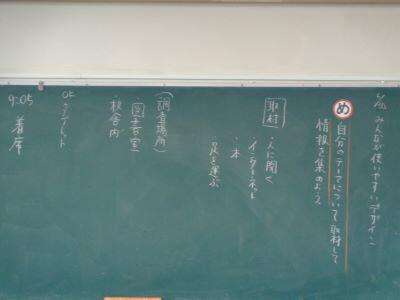 みんなが使いやすいデザイン
め
自分のテーマについて取材して
情報を集めよう。
取材
・人に聞く
・インターネット
・本
・足を運ぶ
(調査場所)
図書室
・校舎内
OKタブレット
9:05 着席